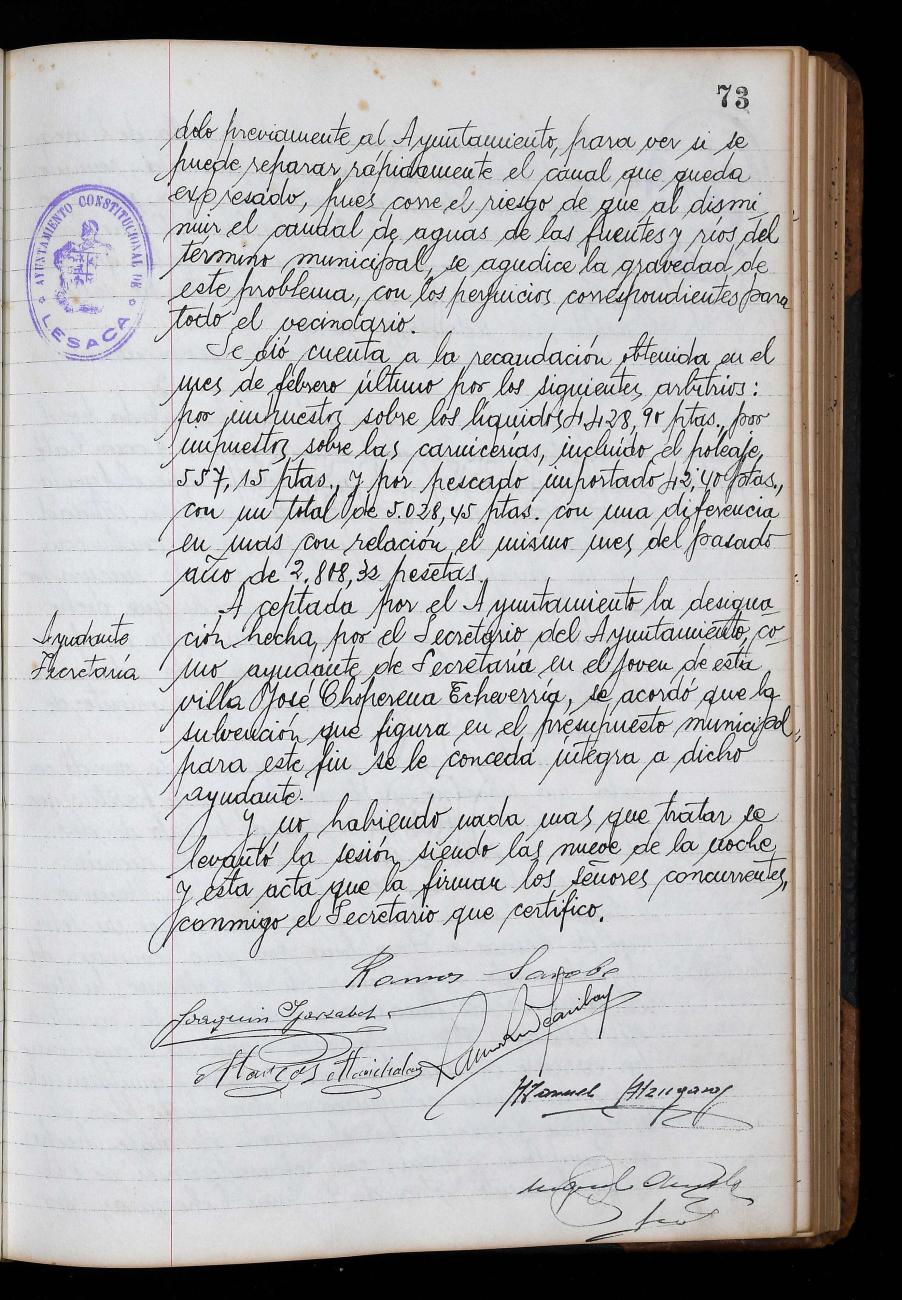 73
dolo previamente al Ayuntamiento, para ver si se
puede reparar rápidamente el canal que queda
expresado, pues corre el riesgo de que al dismi
nuir el caudal de aguas de las fuentes y rios del
término municipal, se agudice la gravedad de
este problema, con los perjuicios correspondientes para
todo el vecindario.
AYUNTAMIENTO CONSTITUCIONAL DE
LESACA
Se dió cuenta a la recaudación obtenida en el
mes de febrero último por los siguientes arbitrios:
por impuestos sobre los líquidos 4.428,90 ptas., por
impuestos sobre las carnicerías, incluído el poteaje,
557,15 ptas., y por pescado importado 42,40 ptas.,
con un total de 5.028,45 ptas. con una diferencia
en mas con relación el mismo mes del pasado
año de 2.808,32 pesetas.
Ayudante
Secretaría
Aceptada por el Ayuntamiento la designa
ción hecha, por el Secretario del Ayuntamiento, co-
mo ayudante de Secretaría en el joven de esta
villa José Choperena Echeverría, se acordó que la
subvención que figura en el presupuesto municipal,
para este fin se le conceda íntegra a dicho
ayudante.
Y no habiendo nada mas que tratar se
levantó la sesión, siendo las nueve de la noche,
y esta acta que la firman los señores concurrentes,
conmigo el Secretario que certifico.
Ramos
Joaquin
Marcos
Manuel
Miguel